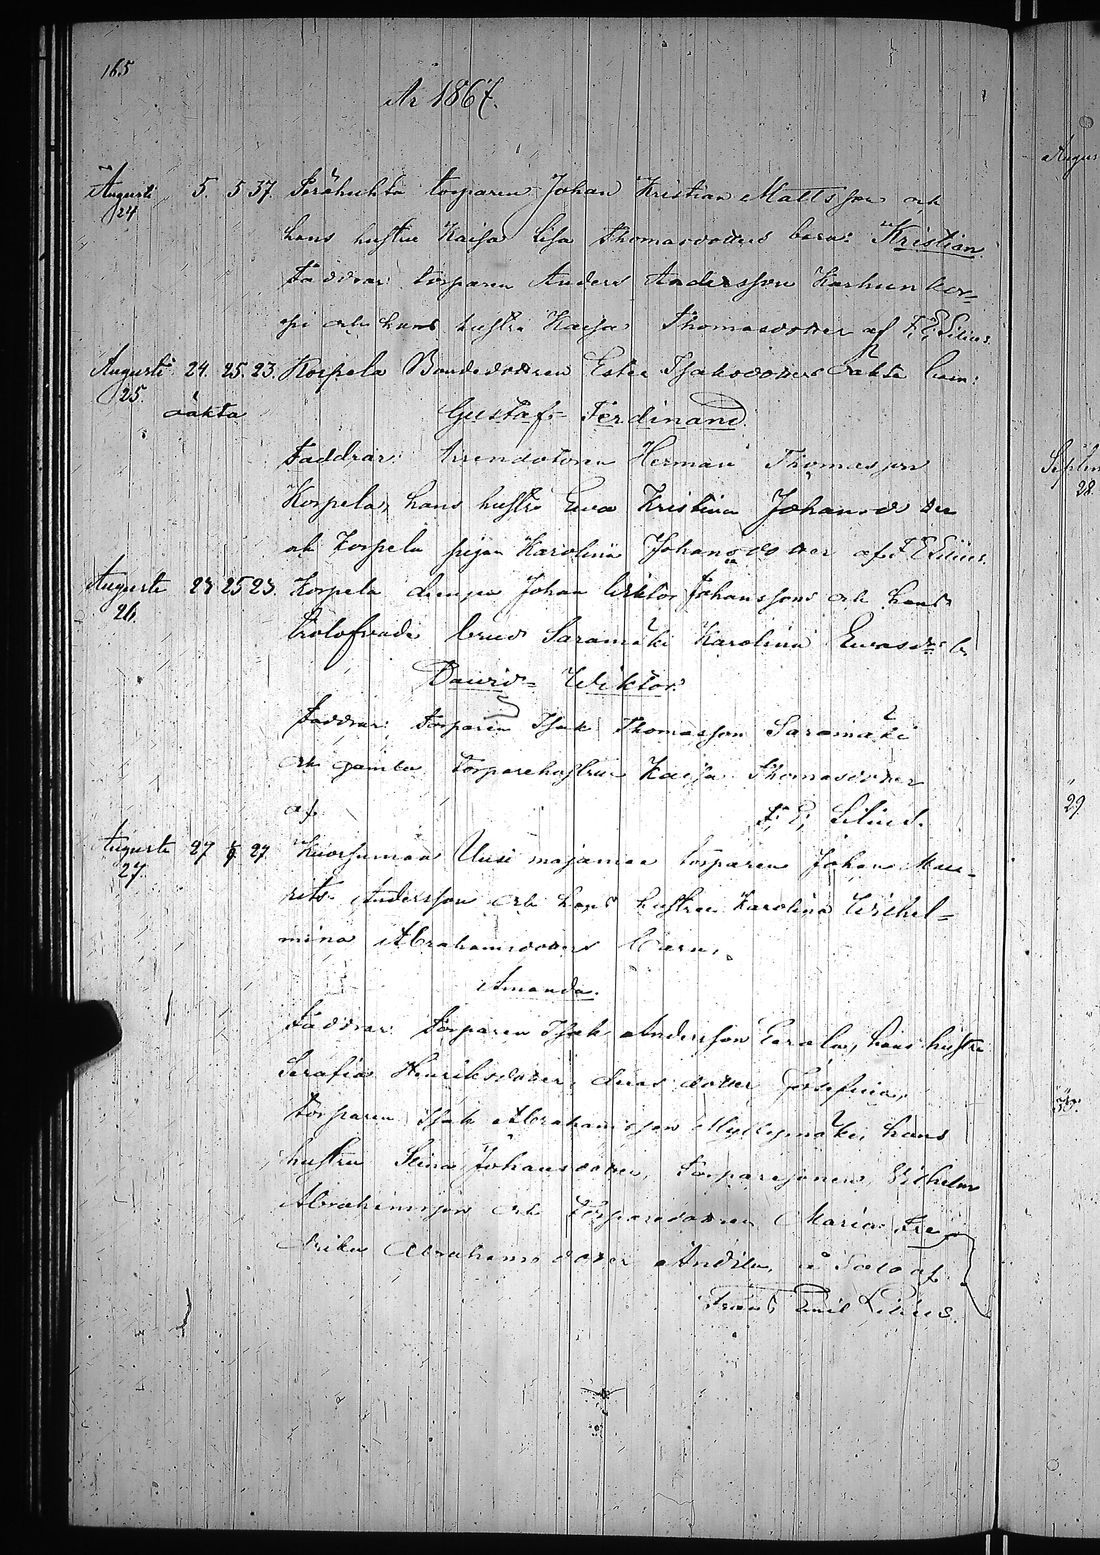 165
År 1867.
Augusti 5. 5 37. torparen Johan Kristian Mattsson och
24
hans hustru Kaisa Lisa Thomasdotters barn: Kristian.
Faddrar: torparen Anders Andersson Karhunkor=
pi och hans hustru Kaisa Thomasdotter af F. E. Lilius.
Augusti 24. 25. 23. Korpela Bondedottren Ester Isaksdotters oäkta barn:
25.
oäkta Gustaf= Ferdinand.
Faddrar: Arrendatoren Herman Thomasson
Korpela, hans hustru Ewa Kristina Johansdotter
och Korpela pigan Karolina Johansdotter af F E Lilius.
Augusti 23 25 23. Korpela drengen Johan Wiktor Johanssons och hans
26.
trolofvade brud Saramäki Karolina Ewasdr b.
David= Wiktor.
Faddrar: torparen Isak Thomasson Saramäki
och gamla torparehustrun Kaisa Thomasdotter
af F. E. Lilius.
Augusti 27 27. Uusi majamaa torparen Johan Mau=
27.
rits Andersson och hans hustru Karolina Wilhel=
mina Abrahamsdotters barn,
Amanda.
Faddrar: torparen Isak Andersson Eerola, hans hustru
Serafia Henriksdotter, deras dotter Josefina,
torparen Isak Abrahamsson Myllymäki, hans
hustru Stina Johansdotter, torparesonen Wilhelm
Abrahamsson och torparedottren Maria Fre
drika Abrahamsdotter Andila, i Salo af
Frans Emil Lilius.
Augus
Septem
28.
29.